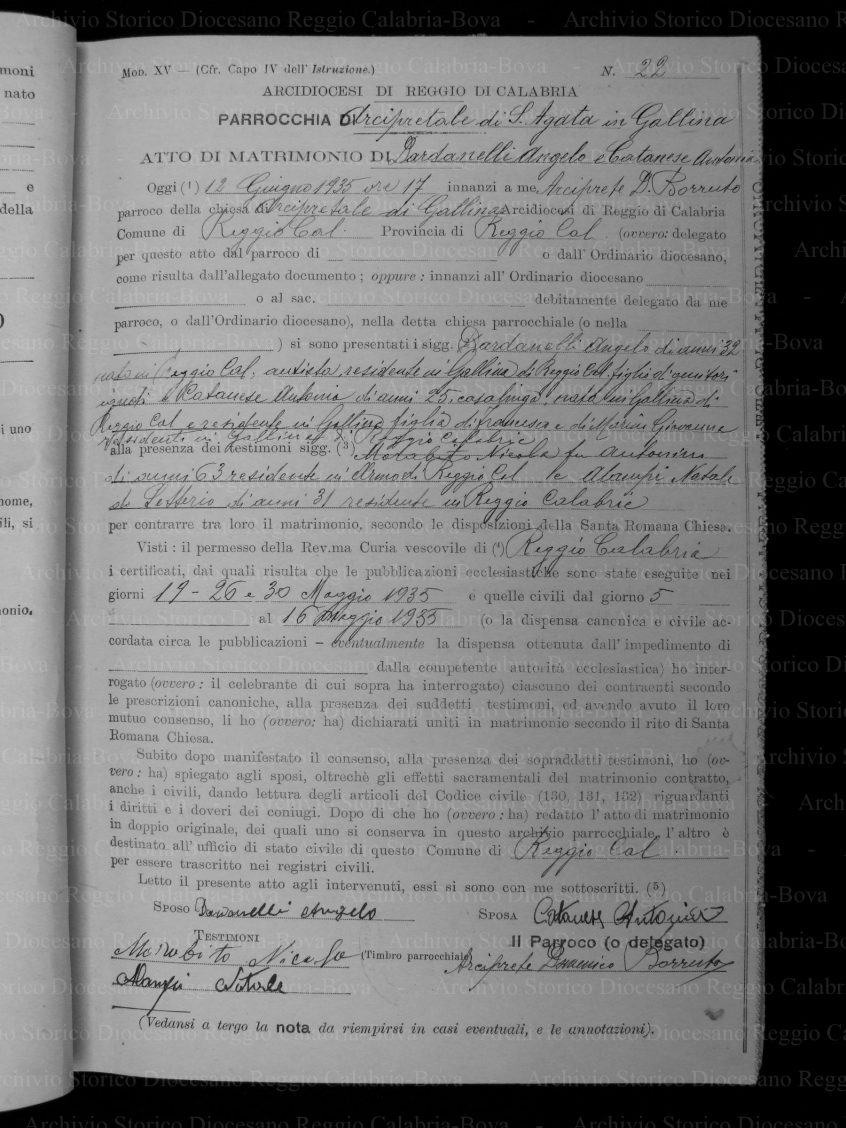 moni
nato
e
della
i uno
nome,
ili, si
onio.
Mod. XV — (Cfr. Capo IV dell' Istruzione.) N. 22
ARCIDIOCESI DI REGGIO DI CALABRIA
PARROCCHIA DI Arcipretale di S. Agata in Gallina
ATTO DI MATRIMONIO DI Dardanelli Angelo e Catanese Antonia
Oggi (1) 12 Giugno 1935 ore 17 innanzi a me Arciprete D. Borruto
parroco della chiesa di Arcipretale di Gallina Arcidiocesi di Reggio di Calabria
Comune di Reggio Cal. Provincia di Reggio Cal. (ovvero: delegato
per questo atto dal parroco di o dall' Ordinario diocesano,
come risulta dall'allegato documento ; oppure : innanzi all' Ordinario diocesano
o al sac. debitamente delegato da me
parroco, o dall'Ordinario diocesano), nella detta chiesa parrocchiale (o nella
) si sono presentati i sigg. Dardanelli Angelo di anni 32
nato in Reggio Cal. autista residente in Gallina di Reggio Cal. figlio d'genitori
ignoti e Catanese Antonia di anni 25, casalinga, nata in Gallina di
Reggio Cal e residente in Gallina figlia di Francesco e di Marin Giovanna
residenti in Gallina di Reggio Calabria
alla presenza dei testimoni sigg. (3) Morabito Nicola fu Antonino
di anni 63 residente in Armo di Reggio Cal e Alampi Natale
di Letterio di anni 31 residente in Reggio Calabria
per contrarre tra loro il matrimonio, secondo le disposizioni della Santa Romana Chiesa.
Visti : il permesso della Rev.ma Curia vescovile di (4) Reggio Calabria
i certificati, dai quali risulta che le pubblicazioni ecclesiastiche sono state eseguite nei
giorni 19 - 26 e 30 Maggio 1935 e quelle civili dal giorno 5
al 16 Maggio 1935 (o la dispensa canonica e civile ac-
cordata circa le pubblicazioni – eventualmente la dispensa ottenuta dall' impedimento di
dalla competente autorità ecclesiastica) ho inter-
rogato (ovvero : il celebrante di cui sopra ha interrogato) ciascuno dei contraenti secondo
le prescrizioni canoniche, alla presenza dei suddetti testimoni, ed avendo avuto il loro
mutuo consenso, li ho (ovvero: ha) dichiarati uniti in matrimonio secondo il rito di Santa
Romana Chiesa.
Subito dopo manifestato il consenso, alla presenza dei sopraddetti testimoni, ho (ov-
vero : ha) spiegato agli sposi, oltrechè gli effetti sacramentali del matrimonio contratto,
anche i civili, dando lettura degli articoli del Codice civile (130, 131, 132) riguardanti
i diritti e i doveri dei coniugi. Dopo di che ho (ovvero : ha) redatto l' atto di matrimonio
in doppio originale, dei quali uno si conserva in questo archivio parrocchiale, l'altro è
destinato all' ufficio di stato civile di questo Comune di Reggio Cal.
per essere trascritto nei registri civili.
Letto il presente atto agli intervenuti, essi si sono con me sottoscritti. (5)
SPOSO Dardanelli Angelo SPOSA Catanese Antonia
TESTIMONI Il Parroco (o delegato)
Morabito Nicola (Timbro parrocchiale) Arciprete Domenico Borruto
Alampi Natale
(Vedansi a tergo la nota da riempirsi in casi eventuali, e le annotazioni).